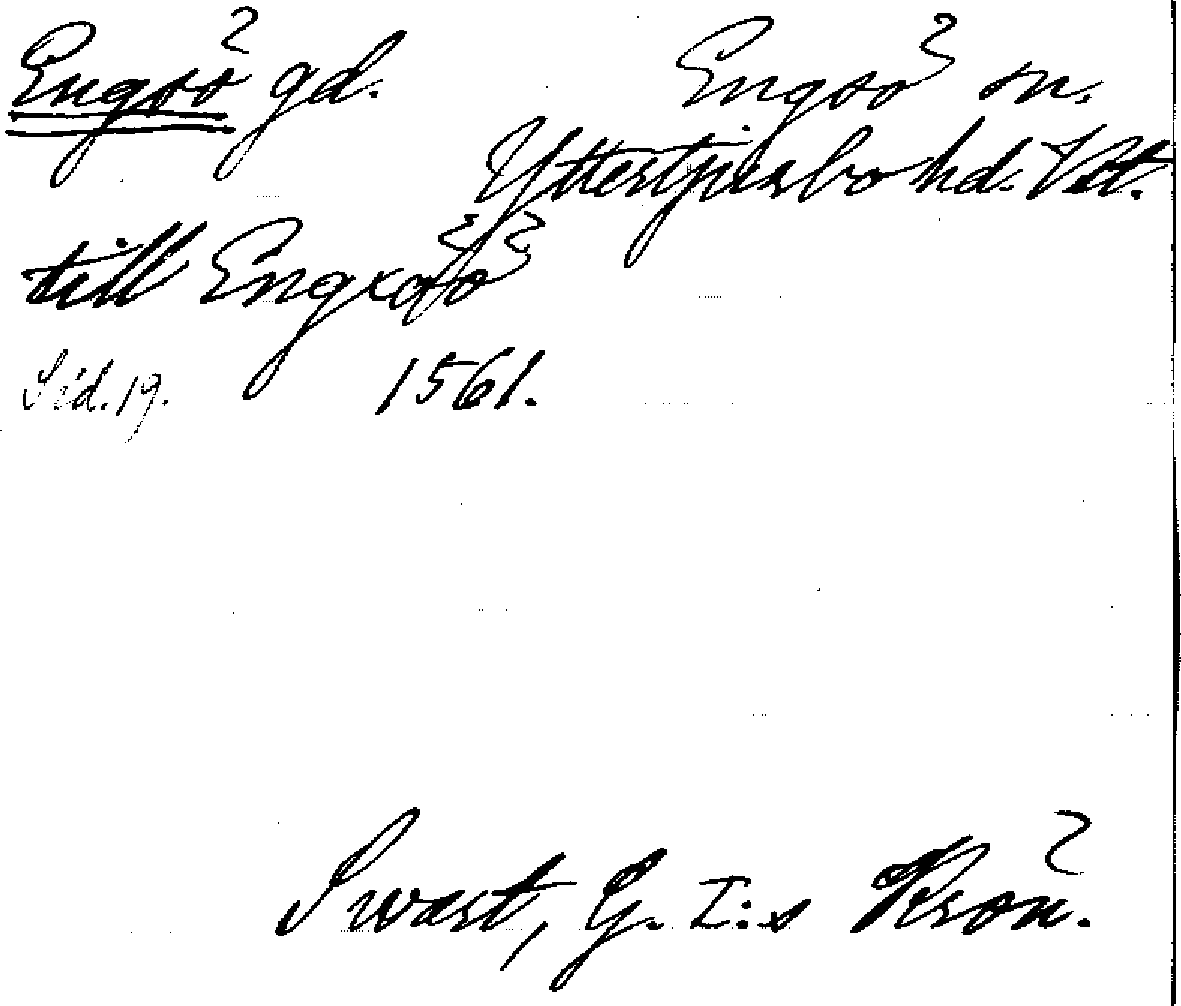 Engsö gd. Engsö sn.
Yttertjurbo hd. Vstt.
till Engxöö
Sid. 19. 1561.
Swart, G. I:s Krön.